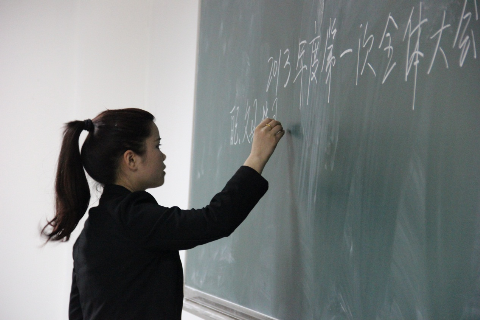 2013年度第一次全体大会